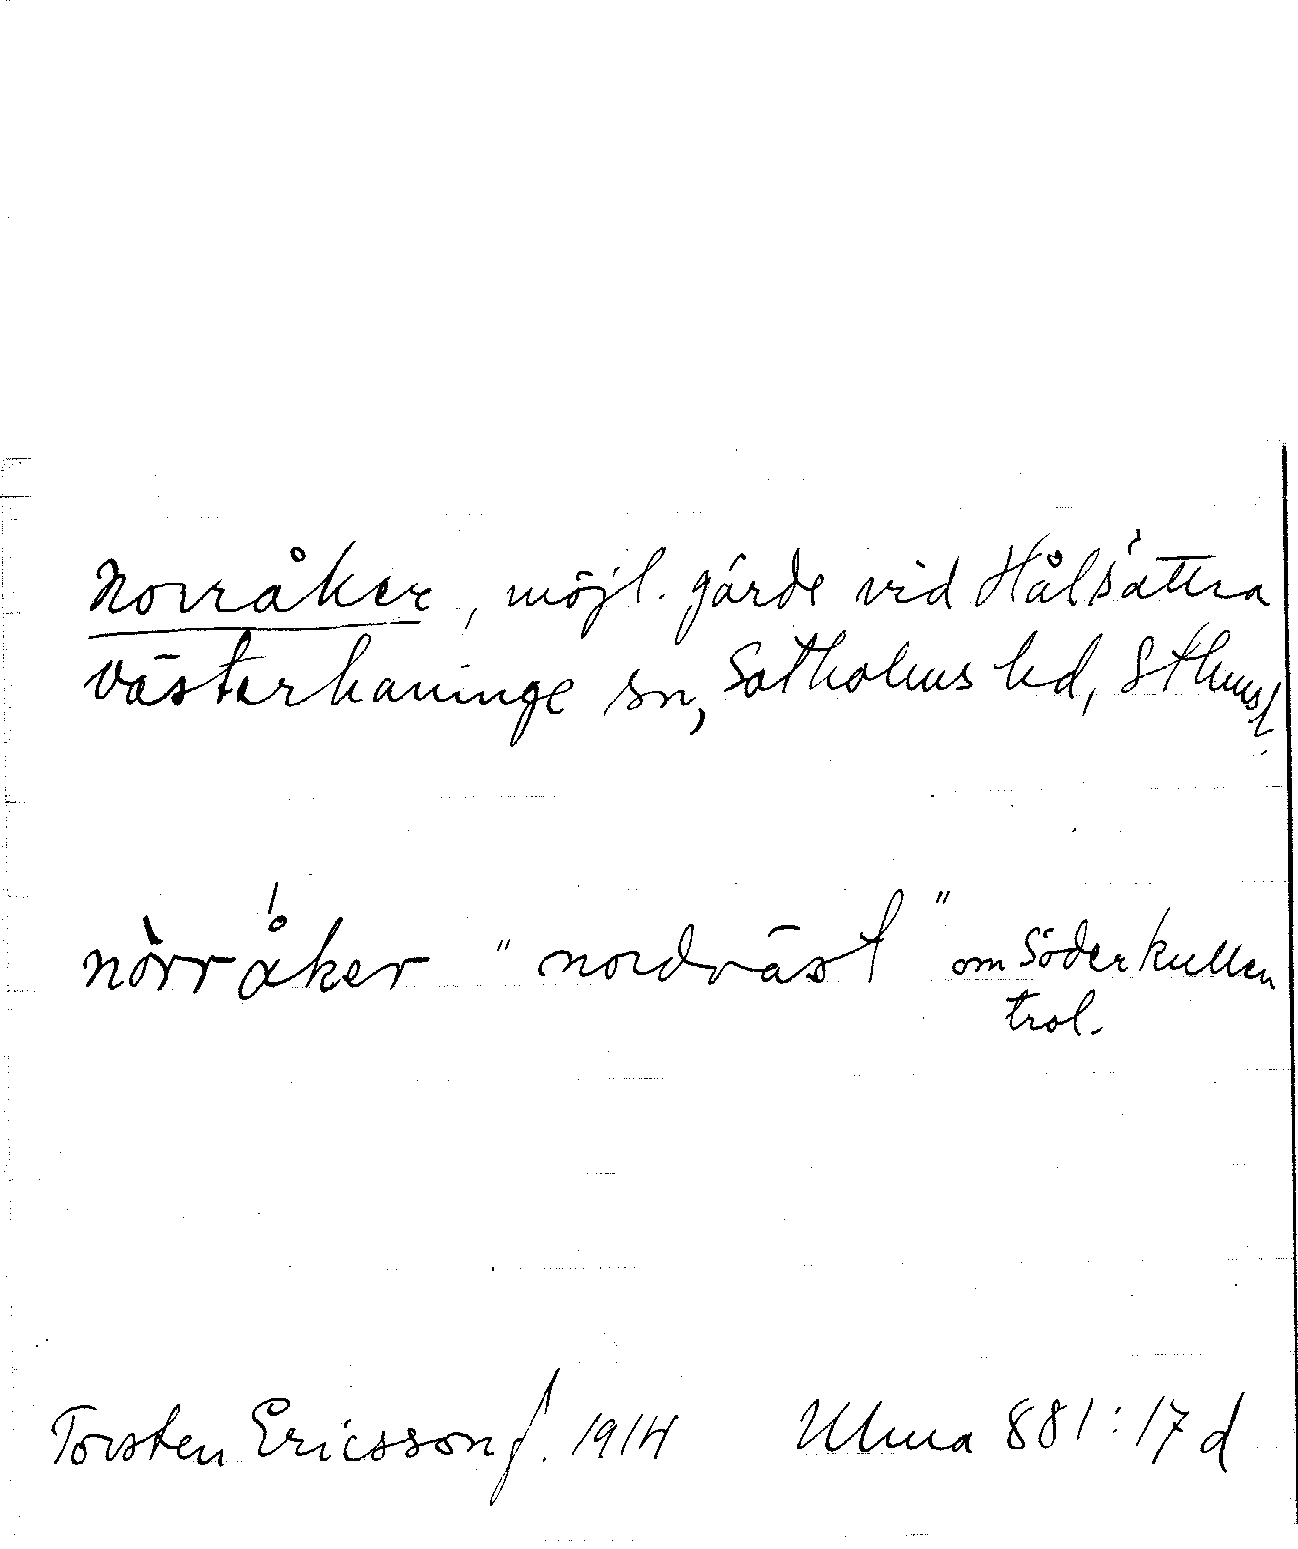 Norråker, möjl. gärde vid Hålsättra
Västerhaninge sn, Sotholms hd, Sthmsl.
nòrråker "nordväst" om Söderkullen
trol.
Torsten Ericsson f. 1914 Ulma 881:17 d